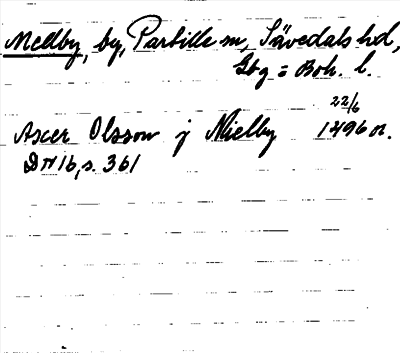 Mellby, by, Partille sn, Sävedals hd,
Gbg = Boh. l.
22/6
Axer Olsson j Mielby 1496 or.
DN 16, s. 361